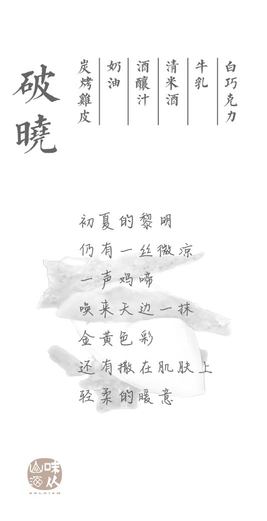 破曉
白巧克力
牛乳
清米酒
酒釀汁
奶油
炭烤雞皮
初夏的黎明
仍有一丝微凉
一声鸡啼
唤来天边一抹
金黄色彩
还有撒在肌肤上
轻柔的暖意